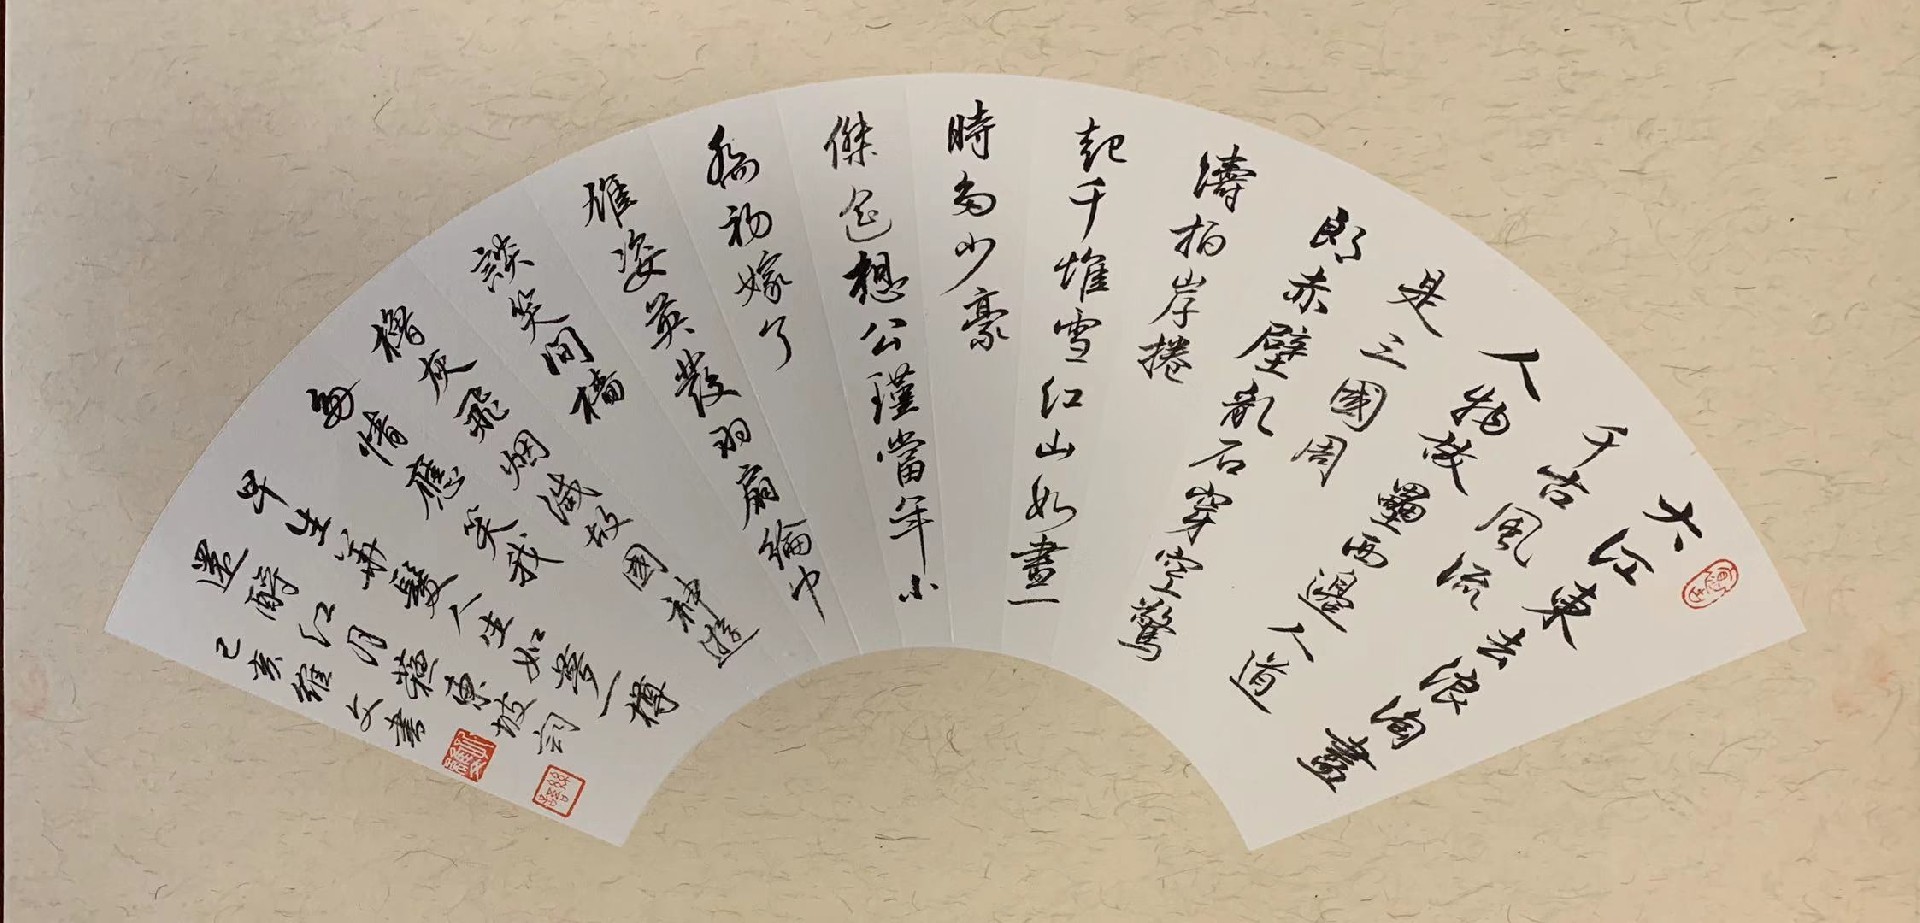 大江東去浪淘盡
千古風流
人物故壘西邊人道
是三國周
郎赤壁亂石穿空驚
濤拍岸捲
起千堆雪江山如畫一
時多少豪
傑遥想公瑾當年小
喬初嫁了
雄姿英發羽扇綸巾
談笑間檣
櫓灰飛烟滅故國神遊
多情應笑我
早生華髮人生如夢一樽
還酹江月蘇東坡詞
己亥維文書